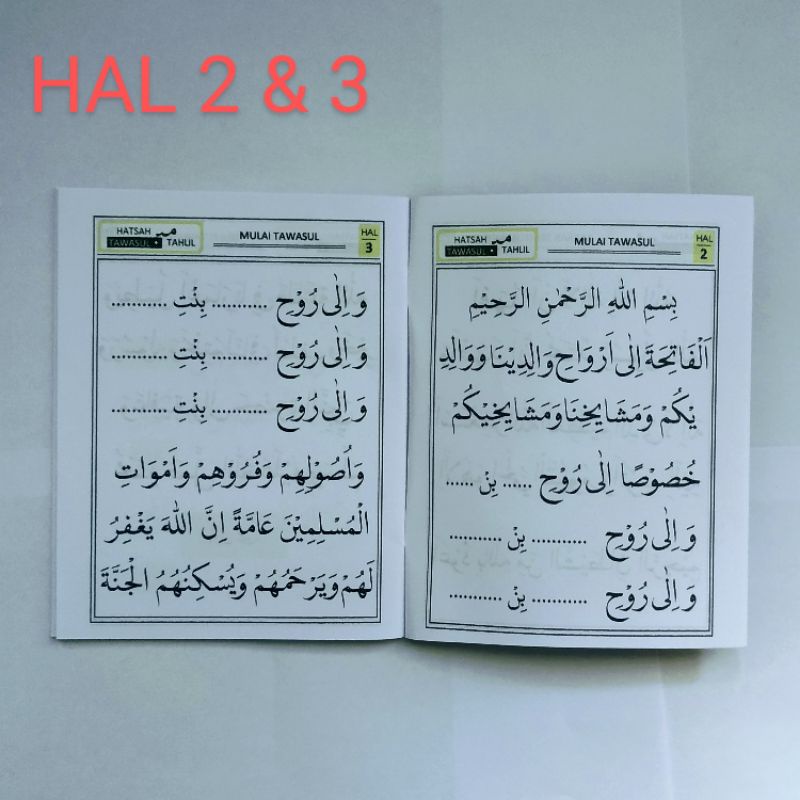 HAL 2 & 3
HATSAH
TAWASUL • TAHLIL
MULAI TAWASUL
HAL
2
بِسْمِ اللهِ الرَّحْمٰنِ الرَّحِيْمِ
اَلْفَاتِحَةَ اِلٰى اَرْوَاحِ وَالِدِيْنَا وَوَالِدِ
يْكُمْ وَمَشَايِخِنَا وَمَشَايِخِيْكُمْ
خُصُوْصًا اِلٰى رُوْحِ ...... بِنْ ......
وَ اِلٰى رُوْحِ ........... بِنْ ...........
وَ اِلٰى رُوْحِ ........... بِنْ ...........
HATSAH
TAWASUL • TAHLIL
MULAI TAWASUL
HAL
3
وَ اِلٰى رُوْحِ ........... بِنْتِ ...........
وَ اِلٰى رُوْحِ ........... بِنْتِ ...........
وَ اِلٰى رُوْحِ ........... بِنْتِ ...........
وَاُصُوْلِهِمْ وَفُرُوْهِمْ وَاَمْوَاتِ
الْمُسْلِمِيْنَ عَامَّةً اِنَّ اللهَ يَغْفِرُ
لَهُمْ وَيَرْحَمُهُمْ وَيُسْكِنُهُمُ الْجَنَّةَ